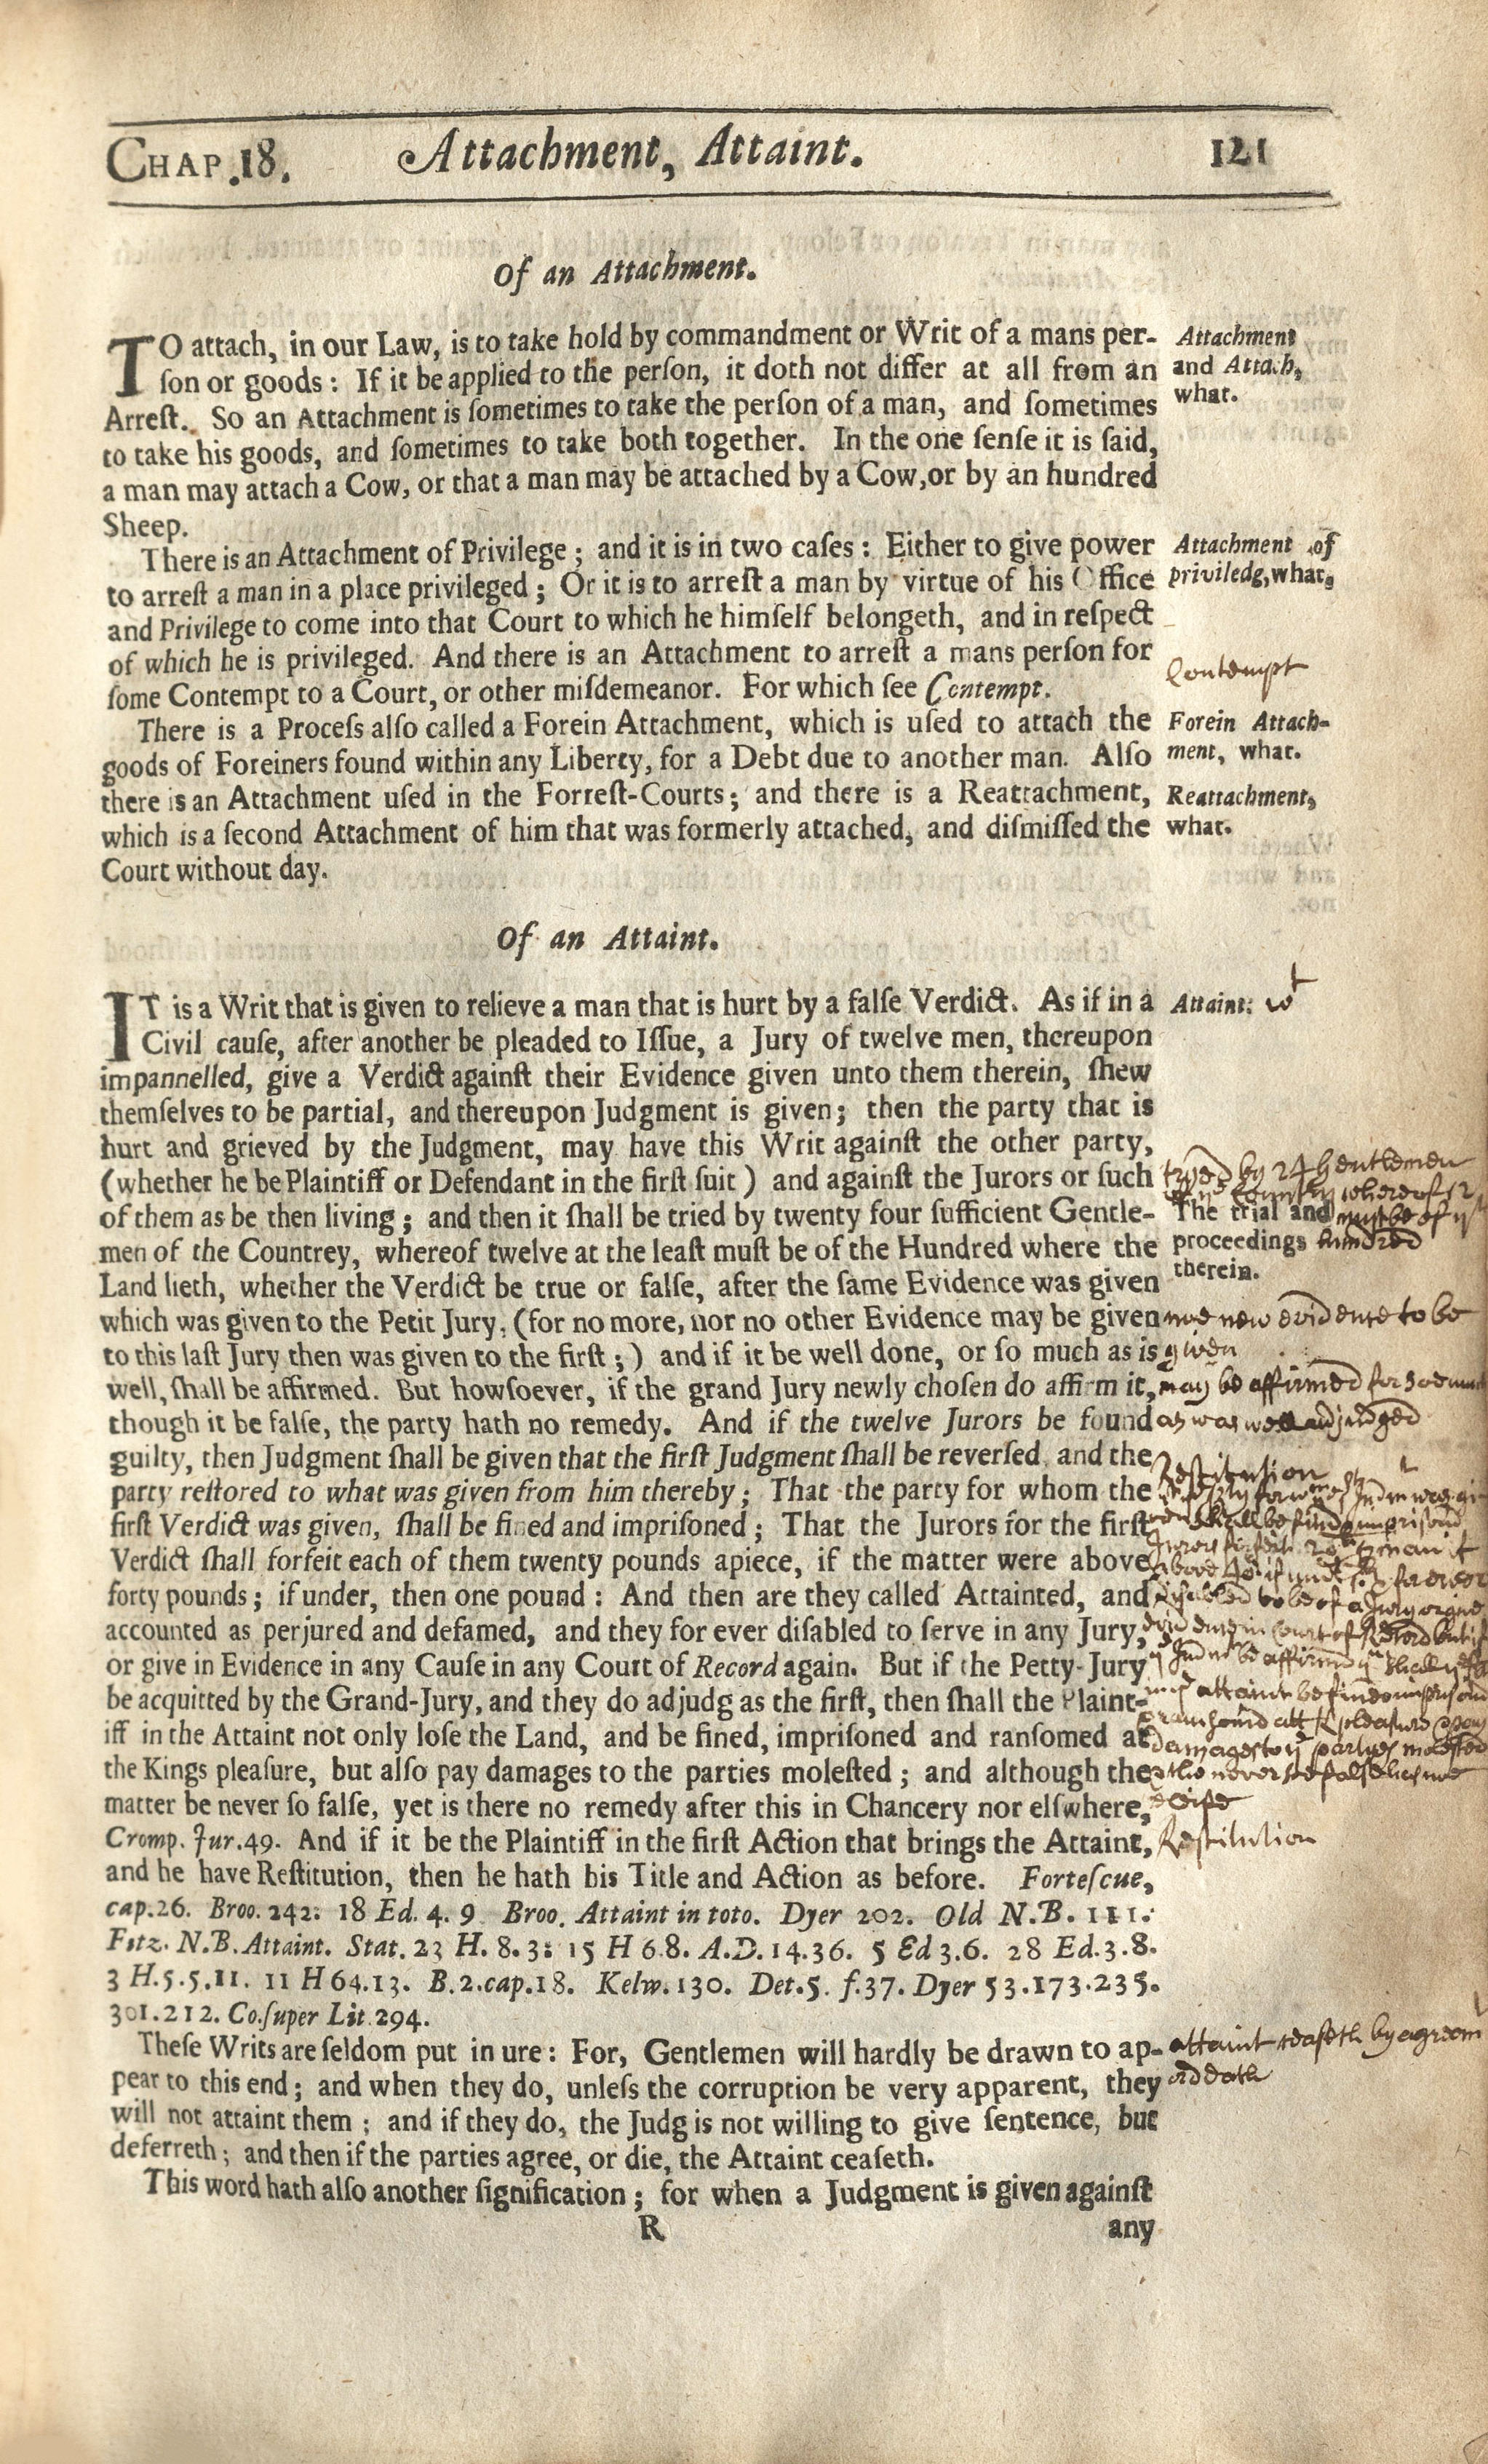 CHAP.18. Attachment, Attaint. 121
Of an Attachment.
TO attach, in our Law, is to take hold by commandment or Writ of a mans per-
ſon or goods: If it be applied to the perſon, it doth not differ at all from an
Arreſt. So an Attachment is ſometimes to take the perſon of a man, and ſometimes
to take his goods, and ſometimes to take both together. In the one ſenſe it is ſaid,
a man may attach a Cow, or that a man may be attached by a Cow, or by an hundred
Sheep.
Attachment
and Attach,
what.
There is an Attachment of Privilege; and it is in two caſes: Either to give power
to arreſt a man in a place privileged; Or it is to arreſt a man by virtue of his Office
and Privilege to come into that Court to which he himſelf belongeth, and in reſpect
of which he is privileged. And there is an Attachment to arreſt a mans perſon for
ſome Contempt to a Court, or other miſdemeanor. For which ſee Contempt.
Attachment of
priviledg, what,
Contempt
There is a Proceſs alſo called a Forein Attachment, which is uſed to attach the
goods of Foreiners found within any Liberty, for a Debt due to another man. Alſo
there is an Attachment uſed in the Forreſt-Courts; and there is a Reattachment,
which is a ſecond Attachment of him that was formerly attached, and diſmiſſed the
Court without day.
Forein Attach-
ment, what.
Reattachment,
what.
Of an Attaint.
IT is a Writ that is given to relieve a man that is hurt by a falſe Verdict. As if in a
Civil cauſe, after another be pleaded to Iſſue, a Jury of twelve men, thereupon
impannelled, give a Verdict againſt their Evidence given unto them therein, ſhew
themſelves to be partial, and thereupon Judgment is given; then the party that is
hurt and grieved by the Judgment, may have this Writ againſt the other party,
(whether he be Plaintiff or Defendant in the firſt ſuit) and againſt the Jurors or ſuch
of them as be then living; and then it ſhall be tried by twenty four ſufficient Gentle-
men of the Countrey, whereof twelve at the leaſt muſt be of the Hundred where the
Land lieth, whether the Verdict be true or falſe, after the ſame Evidence was given
which was given to the Petit Jury, (for no more, nor no other Evidence may be given
to this laſt Jury then was given to the firſt;) and if it be well done, or ſo much as is
well, ſhall be affirmed. But howſoever, if the grand Jury newly choſen do affirm it,
though it be falſe, the party hath no remedy. And if the twelve Jurors be found
guilty, then Judgment ſhall be given that the firſt Judgment ſhall be reverſed, and the
party reſtored to what was given from him thereby; That the party for whom the
firſt Verdict was given, ſhall be fined and impriſoned; That the Jurors for the firſt
Verdict ſhall forfeit each of them twenty pounds apiece, if the matter were above
forty pounds; if under, then one pound: And then are they called Attainted, and
accounted as perjured and defamed, and they for ever diſabled to ſerve in any Jury,
or give in Evidence in any Cauſe in any Court of Record again. But if the Petty-Jury
be acquitted by the Grand-Jury, and they do adjudg as the firſt, then ſhall the Plaint-
iff in the Attaint not only loſe the Land, and be fined, impriſoned and ranſomed at
the Kings pleaſure, but alſo pay damages to the parties moleſted; and although the
matter be never ſo falſe, yet is there no remedy after this in Chancery nor elſwhere,
Cromp. Jur. 49. And if it be the Plaintiff in the firſt Action that brings the Attaint,
and he have Reſtitution, then he hath his Title and Action as before. Forteſcue,
cap.26. Broo. 242. 18 Ed. 4. 9 Broo. Attaint in toto. Dyer 202. Old N.B. 111.
Fitz. N.B. Attaint. Stat. 23 H. 8. 3: 15 H 6.8. A.D. 14.36. 5 Ed 3.6. 28 Ed.3.8.
3 H.5.5.11. 11 H 64.13. B.2.cap.18. Kelw. 130. Det.5. f.37. Dyer 53.173.235.
301.212. Co.ſuper Lit 294.
Attaint: wt
tryed by 24 Gentlemen
whereof 12
The trial and must be of ye
proceedings hundred
therein.
noe new evidence to be
given
may be affirmed for soe much
as was well adjudged
Restitution
damages to ye partyes molested
Restitution
Theſe Writs are ſeldom put in ure: For, Gentlemen will hardly be drawn to ap-
pear to this end; and when they do, unleſs the corruption be very apparent, they
will not attaint them; and if they do, the Judg is not willing to give ſentence, but
deferreth; and then if the parties agree, or die, the Attaint ceaſeth.
attaint ceaseth by agreemt
or death
This word hath alſo another ſignification; for when a Judgment is given againſt
R any